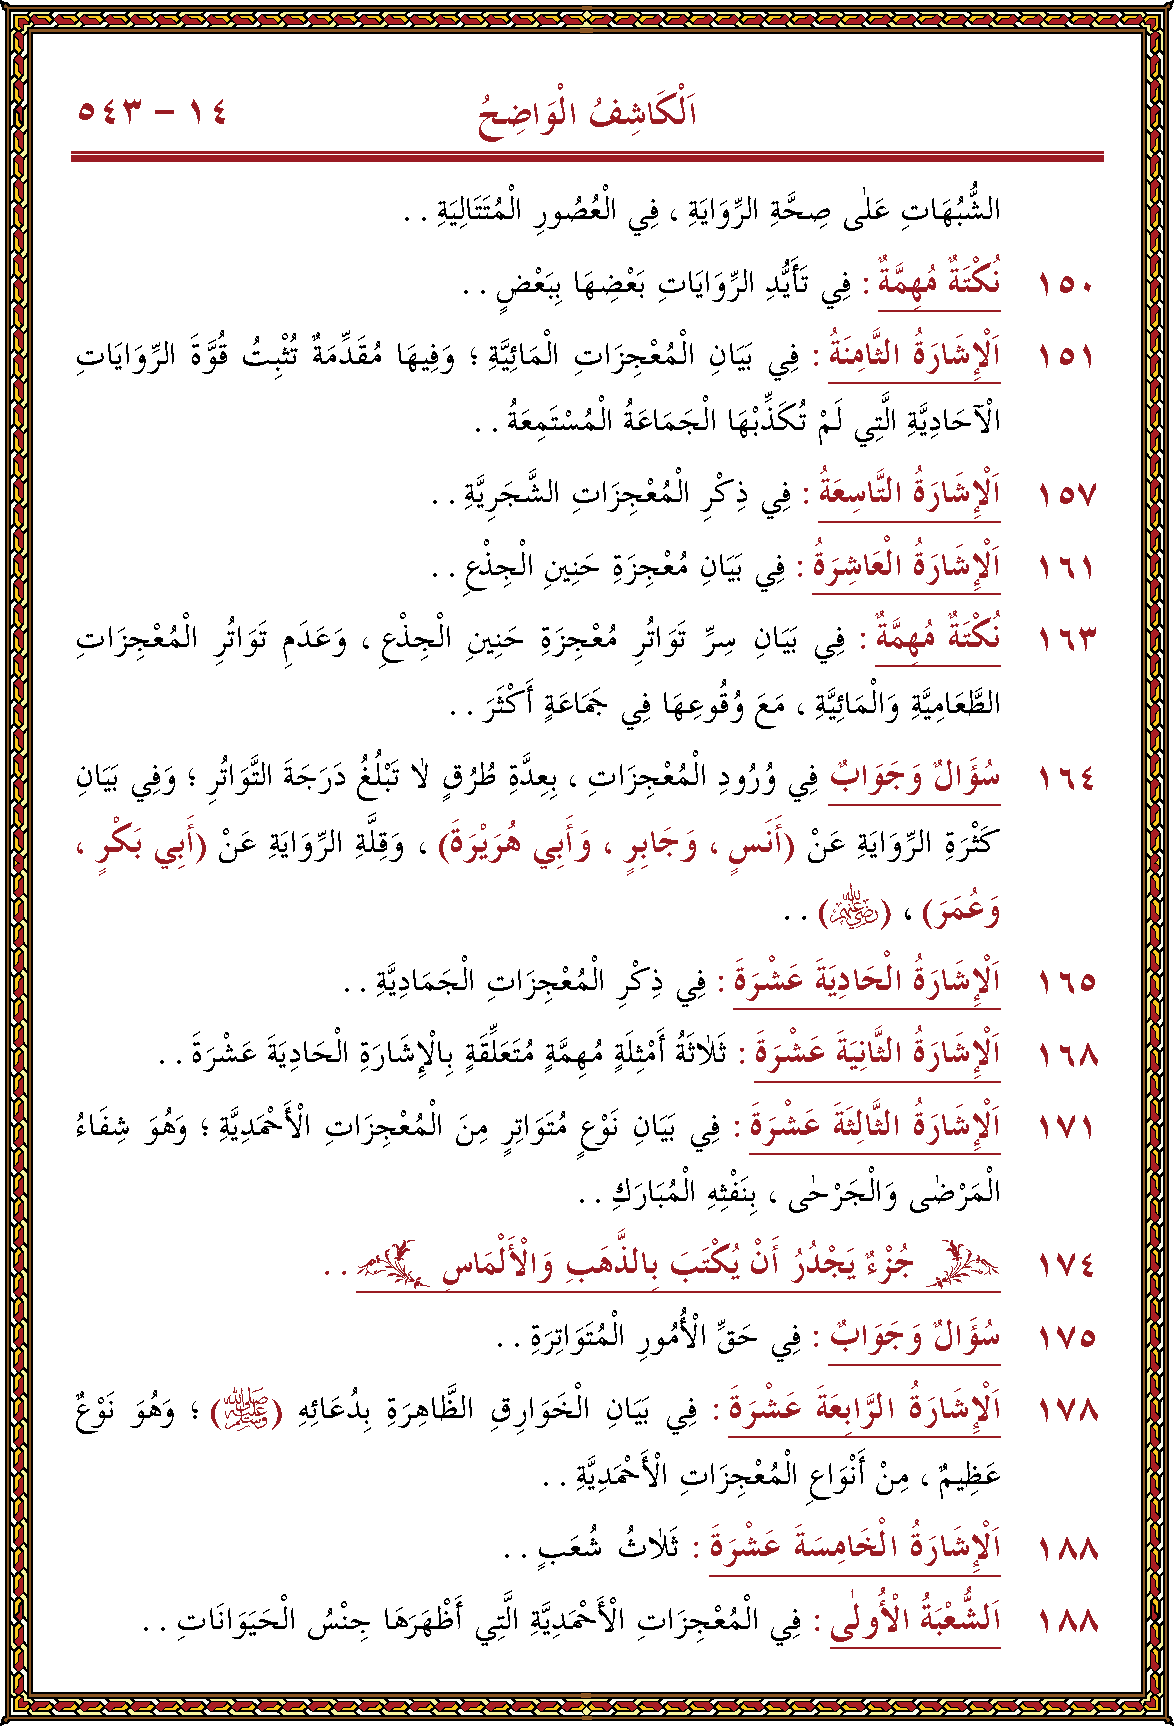 اَلْكَاشِفُ الْوَاضِحُ ١٤ – ٥٤٣
الشُّبُهَاتِ عَلٰى صِحَّةِ الرِّوَايَةِ ، فِي الْعُصُورِ الْمُتَتَالِيَةِ . .
١٥٠ نُكْتَةٌ مُهِمَّةٌ : فِي تَأَيُّدِ الرِّوَايَاتِ بَعْضِهَا بِبَعْضٍ . .
١٥١ اَلْإِشَارَةُ الثَّامِنَةُ : فِي بَيَانِ الْمُعْجِزَاتِ الْمَائِيَّةِ ؛ وَفِيهَا مُقَدِّمَةٌ تُثْبِتُ قُوَّةَ الرِّوَايَاتِ
الْآحَادِيَّةِ الَّتِي لَمْ تُكَذِّبْهَا الْجَمَاعَةُ الْمُسْتَمِعَةُ . .
١٥٧ اَلْإِشَارَةُ التَّاسِعَةُ : فِي ذِكْرِ الْمُعْجِزَاتِ الشَّجَرِيَّةِ . .
١٦١ اَلْإِشَارَةُ الْعَاشِرَةُ : فِي بَيَانِ مُعْجِزَةِ حَنِينِ الْجِذْعِ . .
١٦٣ نُكْتَةٌ مُهِمَّةٌ : فِي بَيَانِ سِرِّ تَوَاتُرِ مُعْجِزَةِ حَنِينِ الْجِذْعِ ، وَعَدَمِ تَوَاتُرِ الْمُعْجِزَاتِ
الطَّعَامِيَّةِ وَالْمَائِيَّةِ ، مَعَ وُقُوعِهَا فِي جَمَاعَةٍ أَكْثَرَ . .
١٦٤ سُؤَالٌ وَجَوَابٌ فِي وُرُودِ الْمُعْجِزَاتِ ، بِعِدَّةِ طُرُقٍ لَا تَبْلُغُ دَرَجَةَ التَّوَاتُرِ ؛ وَفِي بَيَانِ
كَثْرَةِ الرِّوَايَةِ عَنْ (أَنَسٍ ، وَجَابِرٍ ، وَأَبِي هُرَيْرَةَ) ، وَقِلَّةِ الرِّوَايَةِ عَنْ (أَبِي بَكْرٍ ،
وَعُمَرَ) ، (رضي الله عنهم) . .
١٦٥ اَلْإِشَارَةُ الْحَادِيَةَ عَشْرَةَ : فِي ذِكْرِ الْمُعْجِزَاتِ الْجَمَادِيَّةِ . .
١٦٨ اَلْإِشَارَةُ الثَّانِيَةَ عَشْرَةَ : ثَلَاثَةُ أَمْثِلَةٍ مُهِمَّةٍ مُتَعَلِّقَةٍ بِالْإِشَارَةِ الْحَادِيَةَ عَشْرَةَ . .
١٧١ اَلْإِشَارَةُ الثَّالِثَةَ عَشْرَةَ : فِي بَيَانِ نَوْعٍ مُتَوَاتِرٍ مِنَ الْمُعْجِزَاتِ الْأَحْمَدِيَّةِ ؛ وَهُوَ شِفَاءُ
الْمَرْضٰى وَالْجَرْحٰى ، بِنَفْثِهِ الْمُبَارَكِ . .
١٧٤ جُزْءٌ يَجْدُرُ أَنْ يُكْتَبَ بِالذَّهَبِ وَالْأَلْمَاسِ . .
١٧٥ سُؤَالٌ وَجَوَابٌ : فِي حَقِّ الْأُمُورِ الْمُتَوَاتِرَةِ . .
١٧٨ اَلْإِشَارَةُ الرَّابِعَةَ عَشْرَةَ : فِي بَيَانِ الْخَوَارِقِ الظَّاهِرَةِ بِدُعَائِهِ (ﷺ) ؛ وَهُوَ نَوْعٌ
عَظِيمٌ ، مِنْ أَنْوَاعِ الْمُعْجِزَاتِ الْأَحْمَدِيَّةِ . .
١٨٨ اَلْإِشَارَةُ الْخَامِسَةَ عَشْرَةَ : ثَلَاثُ شُعَبٍ . .
١٨٨ اَلشُّعْبَةُ الْأُولٰى : فِي الْمُعْجِزَاتِ الْأَحْمَدِيَّةِ الَّتِي أَظْهَرَهَا جِنْسُ الْحَيَوَانَاتِ . .